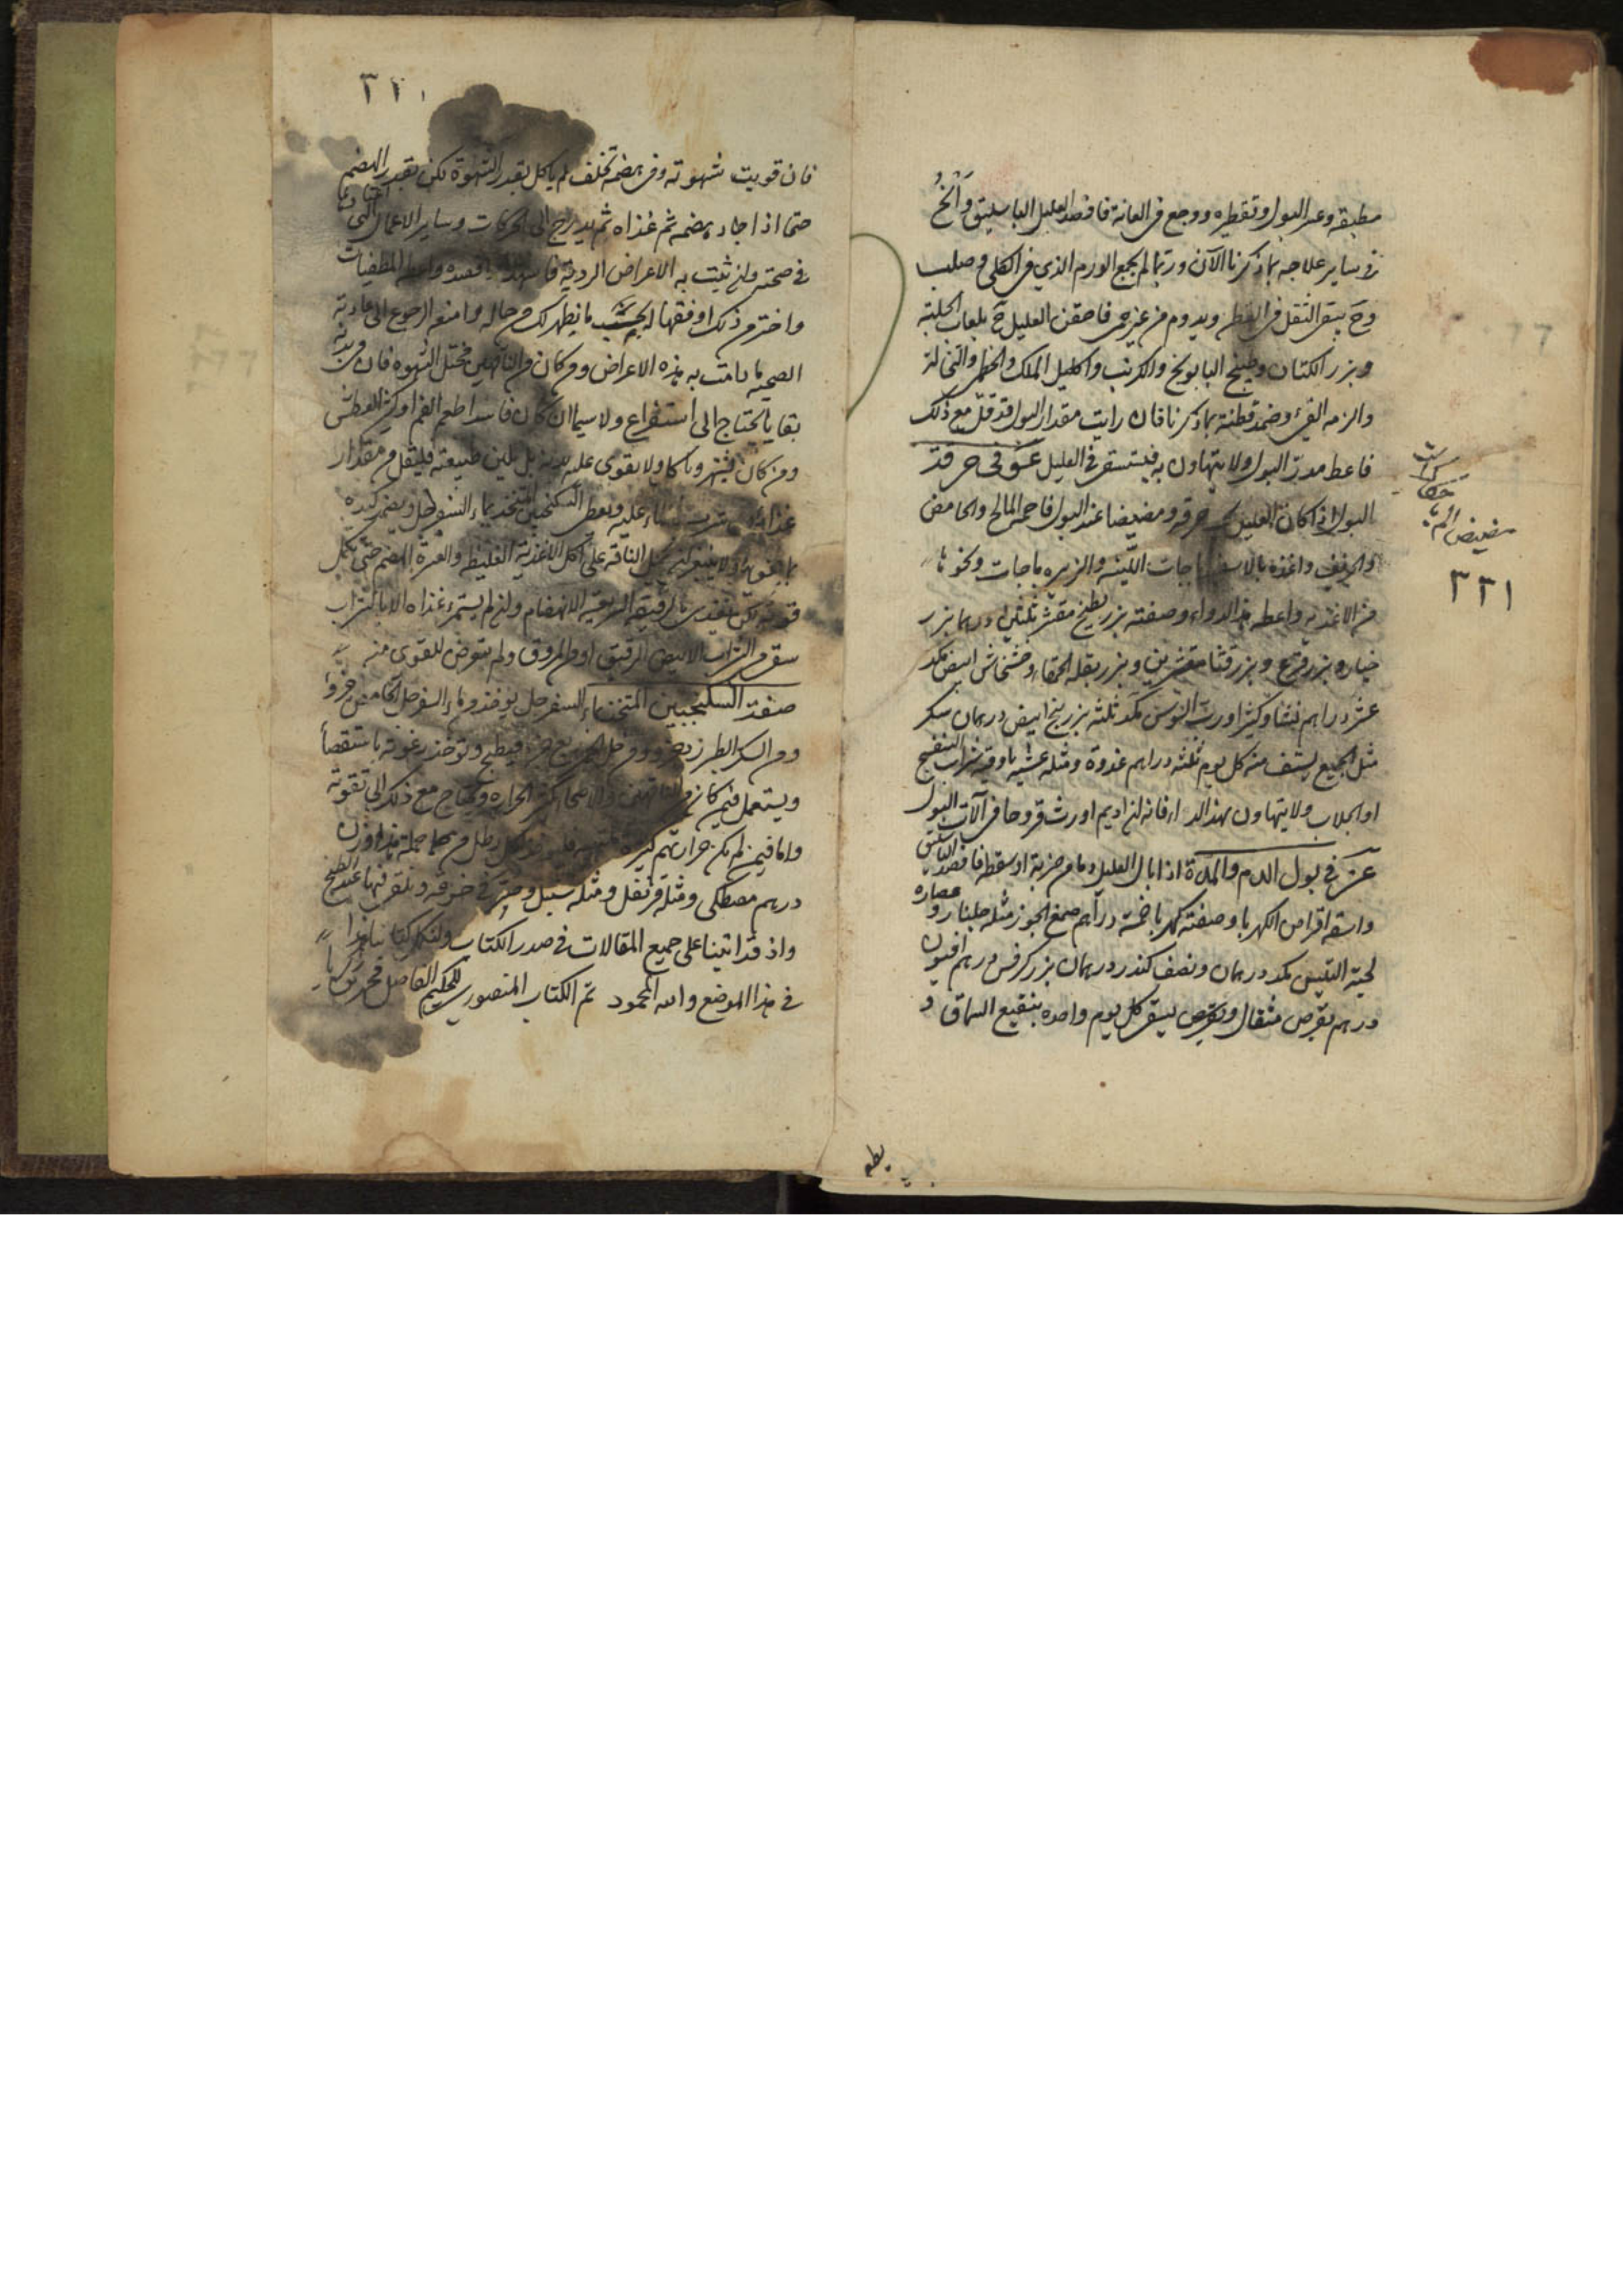 مطبقة وعسر البول وتقطيره ووجع فى العانة فافصد العليل الباسليق وانحُ
فى ساير علاجه بما ذكرنا الآن وربما لم يجمع الورم الذي فى الكلى وصلب
وح يبقى الثقل فى القطن ويدوم من غير حمى فاحقن العليل ح بلعاب الحلبة
وبزر الكتان وطبيخ البابونج والكرنب واكليل الملك والخطمى والنخالة
والزمه القئ وضمد قطنه بما ذكرنا فان رايت مقدار البول قد قل مع ذلك
فاعط مدر البول ولا يتهاون به فيستسقى العليل عو فى حرقة
البول اذا كان العليل يجد حرقة ومضيضا عند البول فاحمه المالح والحامض
والحريف واغذه بالاسفيدباجات اللينه والزيرباجات ونحوها
من الاغذيه واعطه هذا الدواء وصفته بزر بطيخ مقشر ثلثين درهما بزر
خيار وبزر قرع وبزر قثا مقشرين وبزر بقلة الحمقاء وخشخاش ابيض مكد
عشرة دراهم نشا وكثيرا ورب السوس مكد ثلثه بزر بنج ابيض درهمان سكر
مثل الجميع يستف منه كل يوم ثلثه دراهم غدوة ومثله عشيه باوقيه شراب البنفسج
او الجلاب ولا يتهاون بهذا الداء فانه ان اديم اورث قروحا فى آلات البول
عز فى بول الدم والمدة اذا بال العليل دما من ضربة او سقطه فافصده الباسليق
واسقه اقراص الكهربا وصفته كهربا خمسة دراهم صمغ الجوز مثله جلنار وعصارة
لحية التيس مكد درهمان ونصف كندر درهمان بزر كرفس درهم افيون
درهم يقرص مثقال ويقرص يسقى كل يوم واحده بنقيع السماق و
مضيض الم
٣٢١
٣٢١
فان قويت شهوته وفى هضمه تخلف لم ياكل بقدر الشهوة لكن بقدر الهضم
حتى اذا جاد هضمه ثم غذاه ثم يدرج الى الحركات وساير الاعمال التى اعتادها
فى صحته وان ثبتت به الاعراض الردية واعطه المطفيات
واختر من ذلك اوفقها له بحسب ما يظهر لك من حاله وامنعه الرجوع الى عادته
الصحيه ما دامت به هذه الاعراض ومن كان من الناقهين مختل الشهوه فان فى بدنه
بقايا يحتاج الى استفراغ ولا سيما ان كان فاسد اطعم الفم او كثير العطش
ومن كان يشتهى وياكل ولا يقوى عليه بدنه بل تلين طبيعته فليقلل من مقدار
غذائه شرب الماء عليه ويعطى السكنجبين المتخذ بماء السفرجل ويضمد كبده
بما يقويها ولا ينبغى ان يحمل الناقه على اكل الاغذية الغليظه والعسرة الهضم حتى تكمل
قوته لكن يغذى بالرقيقه السريعة الانهضام وان لم يستمرء غذاه الا بالشراب
سقى من الشراب الابيض الرقيق او المروق ولم يتعرض للقوى منه
صفة السكنجبين المتخذ بماء السفرجل يوخذ من ماء السفرجل الحامض جزؤ
ومن السكر الطبرزد جزو ومن خل الخمر ربع جزء فيطبخ وتوخذ رغوته باستقصاء
ويستعمل فيمن كان من الناقهين والاصحاء كثير الحرارة ويحتاج مع ذلك الى تقوية
واما فيمن لم يكن حرارتهم كثيرة لكل رطل من جملة هذا وزن
درهم مصطكى ومثله قرنفل ومثله سنبل وصر فى خرقه ويلقى فيها عند الطبخ
واذ قد اتينا على جميع المقالات فى صدر الكتاب ولنكمل كتابنا هذا
فى هذا الموضع والله المحمود تم الكتاب المنصورى للحكيم الفاضل محمد بن زكريا